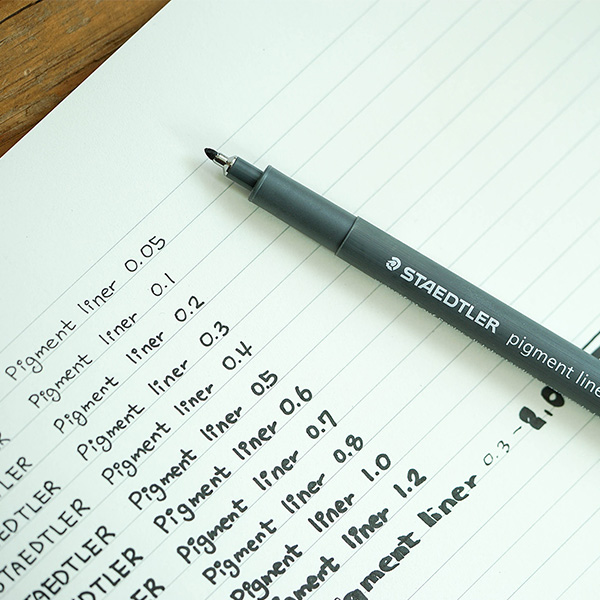 STAEDTLER pigment line
Pigment liner 0.05
Pigment liner 0.1
Pigment liner 0.2
Pigment liner 0.3
Pigment liner 0.4
STAEDTLER Pigment liner 05
STAEDTLER Pigment liner 0.6
STAEDTLER Pigment liner 0.7
STAEDTLER Pigment liner 0.8
Pigment liner 1.0
Pigment liner 1.2
liner 0.3-2.0